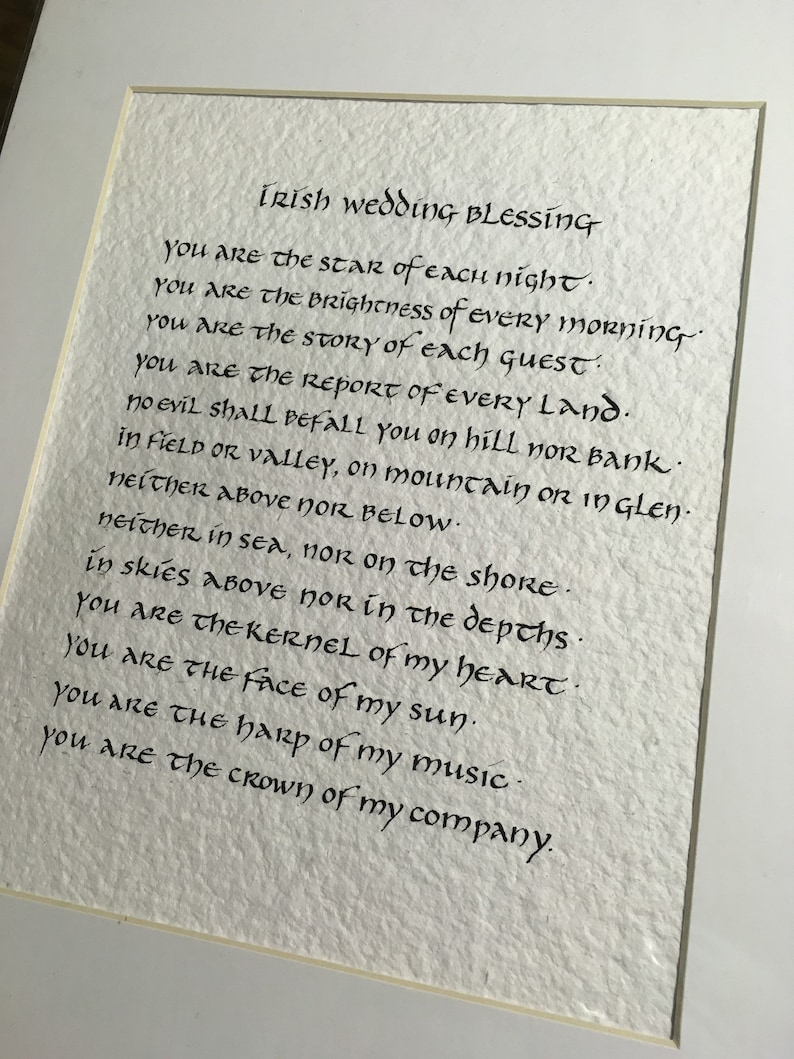 Irish Wedding Blessing
you are the star of each night.
you are the brightness of every morning.
you are the story of each guest.
you are the report of every land.
no evil shall befall you on hill nor bank.
in field or valley, on mountain or in glen.
neither above nor below.
neither in sea, nor on the shore.
in skies above nor in the depths.
you are the kernel of my heart.
you are the face of my sun.
you are the harp of my music.
you are the crown of my company.